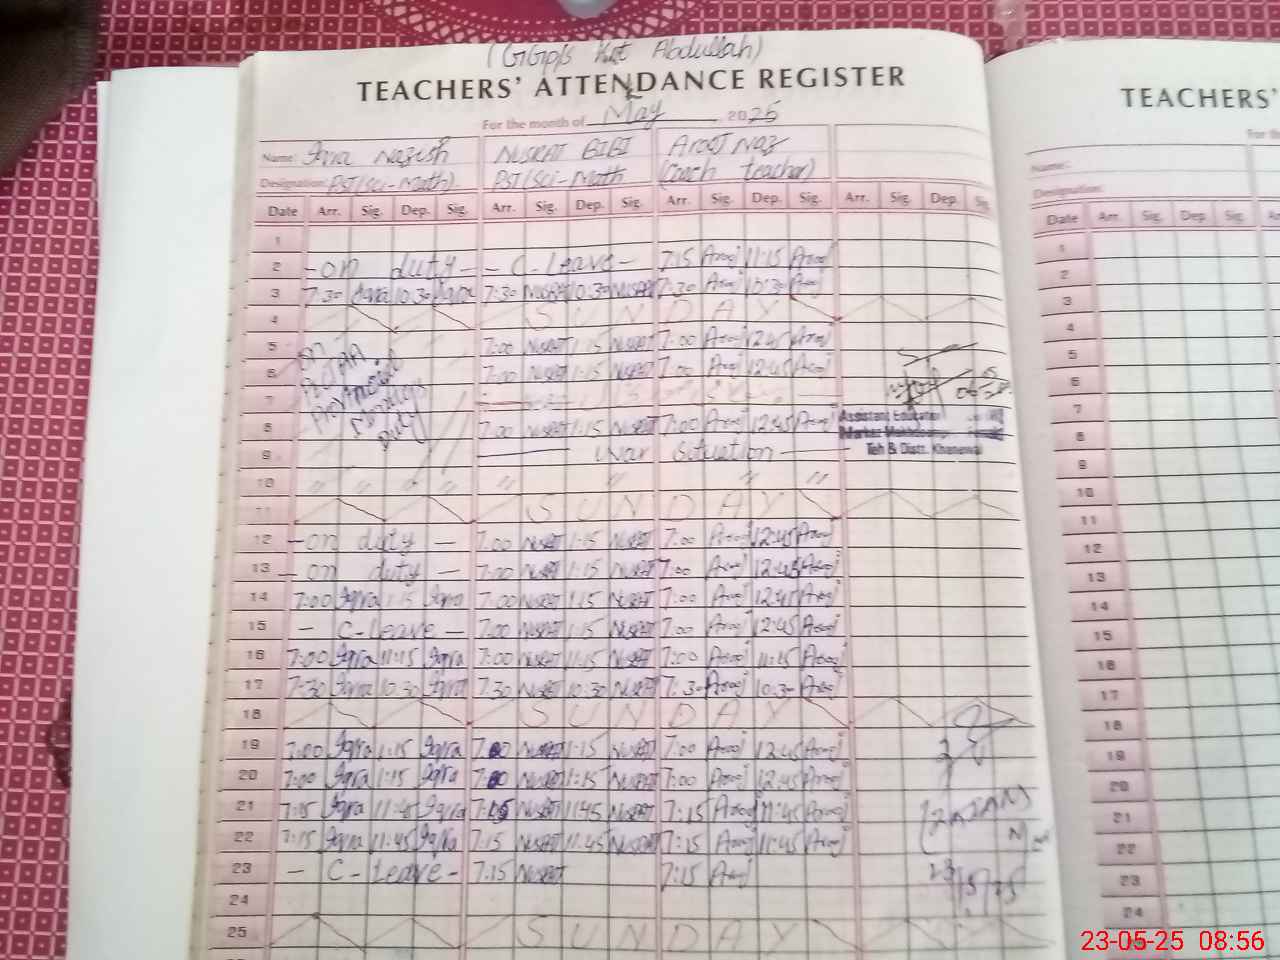 (GGPS Kot Abdullah)
TEACHERS' ATTENDANCE REGISTER
For the month of May, 2025
Name: Iqra Nazish NUSRAT BIBI Arooj Naz
Designation: PST(Sci-Math) PST(Sci-Math (Coach teacher)
Date Arr. Sig. Dep. Sig. Arr. Sig. Dep. Sig. Arr. Sig. Dep. Sig. Arr. Sig. Dep. Sig.
1
2 -on duty- - C-Leave- 7:15 Arooj 11:15 Arooj
3 7:30 Iqra 10:30 Iqra 7:30 NUSRAT 10:30 NUSRAT 7:30 Arooj 10:30 Arooj
4 SUNDAY
5 on 7:00 NUSRAT 1:15 NUSRAT 7:00 Arooj 12:45 Arooj
6 7:00 NUSRAT 1:15 NUSRAT 7:00 Arooj 12:45 Arooj
7
8 Duty 7:00 NUSRAT 1:15 NUSRAT 7:00 Arooj 12:45 Arooj
Assistant Education
Teh & Distt. Khanewal
9 War Situation
10 " " " " " " " "
11 SUNDAY
12 -on duty- 7:00 NUSRAT 1:15 NUSRAT 7:00 Arooj 12:45 Arooj
13 -on duty- 7:00 NUSRAT 1:15 NUSRAT 7:00 Arooj 12:45 Arooj
14 7:00 Iqra 1:15 Iqra 7:00 NUSRAT 1:15 NUSRAT 7:00 Arooj 12:45 Arooj
15 - C-Leave- 7:00 NUSRAT 1:15 NUSRAT 7:00 Arooj 12:45 Arooj
16 7:00 Iqra 11:15 Iqra 7:00 NUSRAT 11:15 NUSRAT 7:00 Arooj 11:15 Arooj
17 7:30 Iqra 10:30 Iqra 7:30 NUSRAT 10:30 NUSRAT 7:30 Arooj 10:30 Arooj
18 SUNDAY
19 7:00 Iqra 1:15 Iqra 7:00 NUSRAT 1:15 NUSRAT 7:00 Arooj 12:45 Arooj
20 7:00 Iqra 1:15 Iqra 7:00 NUSRAT 1:15 NUSRAT 7:00 Arooj 12:45 Arooj
21 7:15 Iqra 11:45 Iqra 7:15 NUSRAT 11:45 NUSRAT 7:15 Arooj 11:45 Arooj
22 7:15 Iqra 11:45 Iqra 7:15 NUSRAT 11:45 NUSRAT 7:15 Arooj 11:45 Arooj
23 - C-Leave- 7:15 NUSRAT 7:15 Arooj
24
25 SUNDAY
TEACHERS'
For th
Name:
Designation:
Date Arr. Sig. Dep. Sig. A
1
2
3
4
5
6
7
8
9
10
11
12
13
14
15
16
17
18
19
20
21
22
23
24
23-05-25 08:56